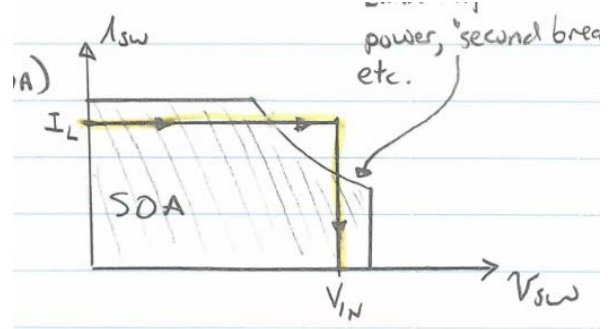 i_SW
power, "second brea
etc.
A)
I_L
SOA
V_IN
V_SW